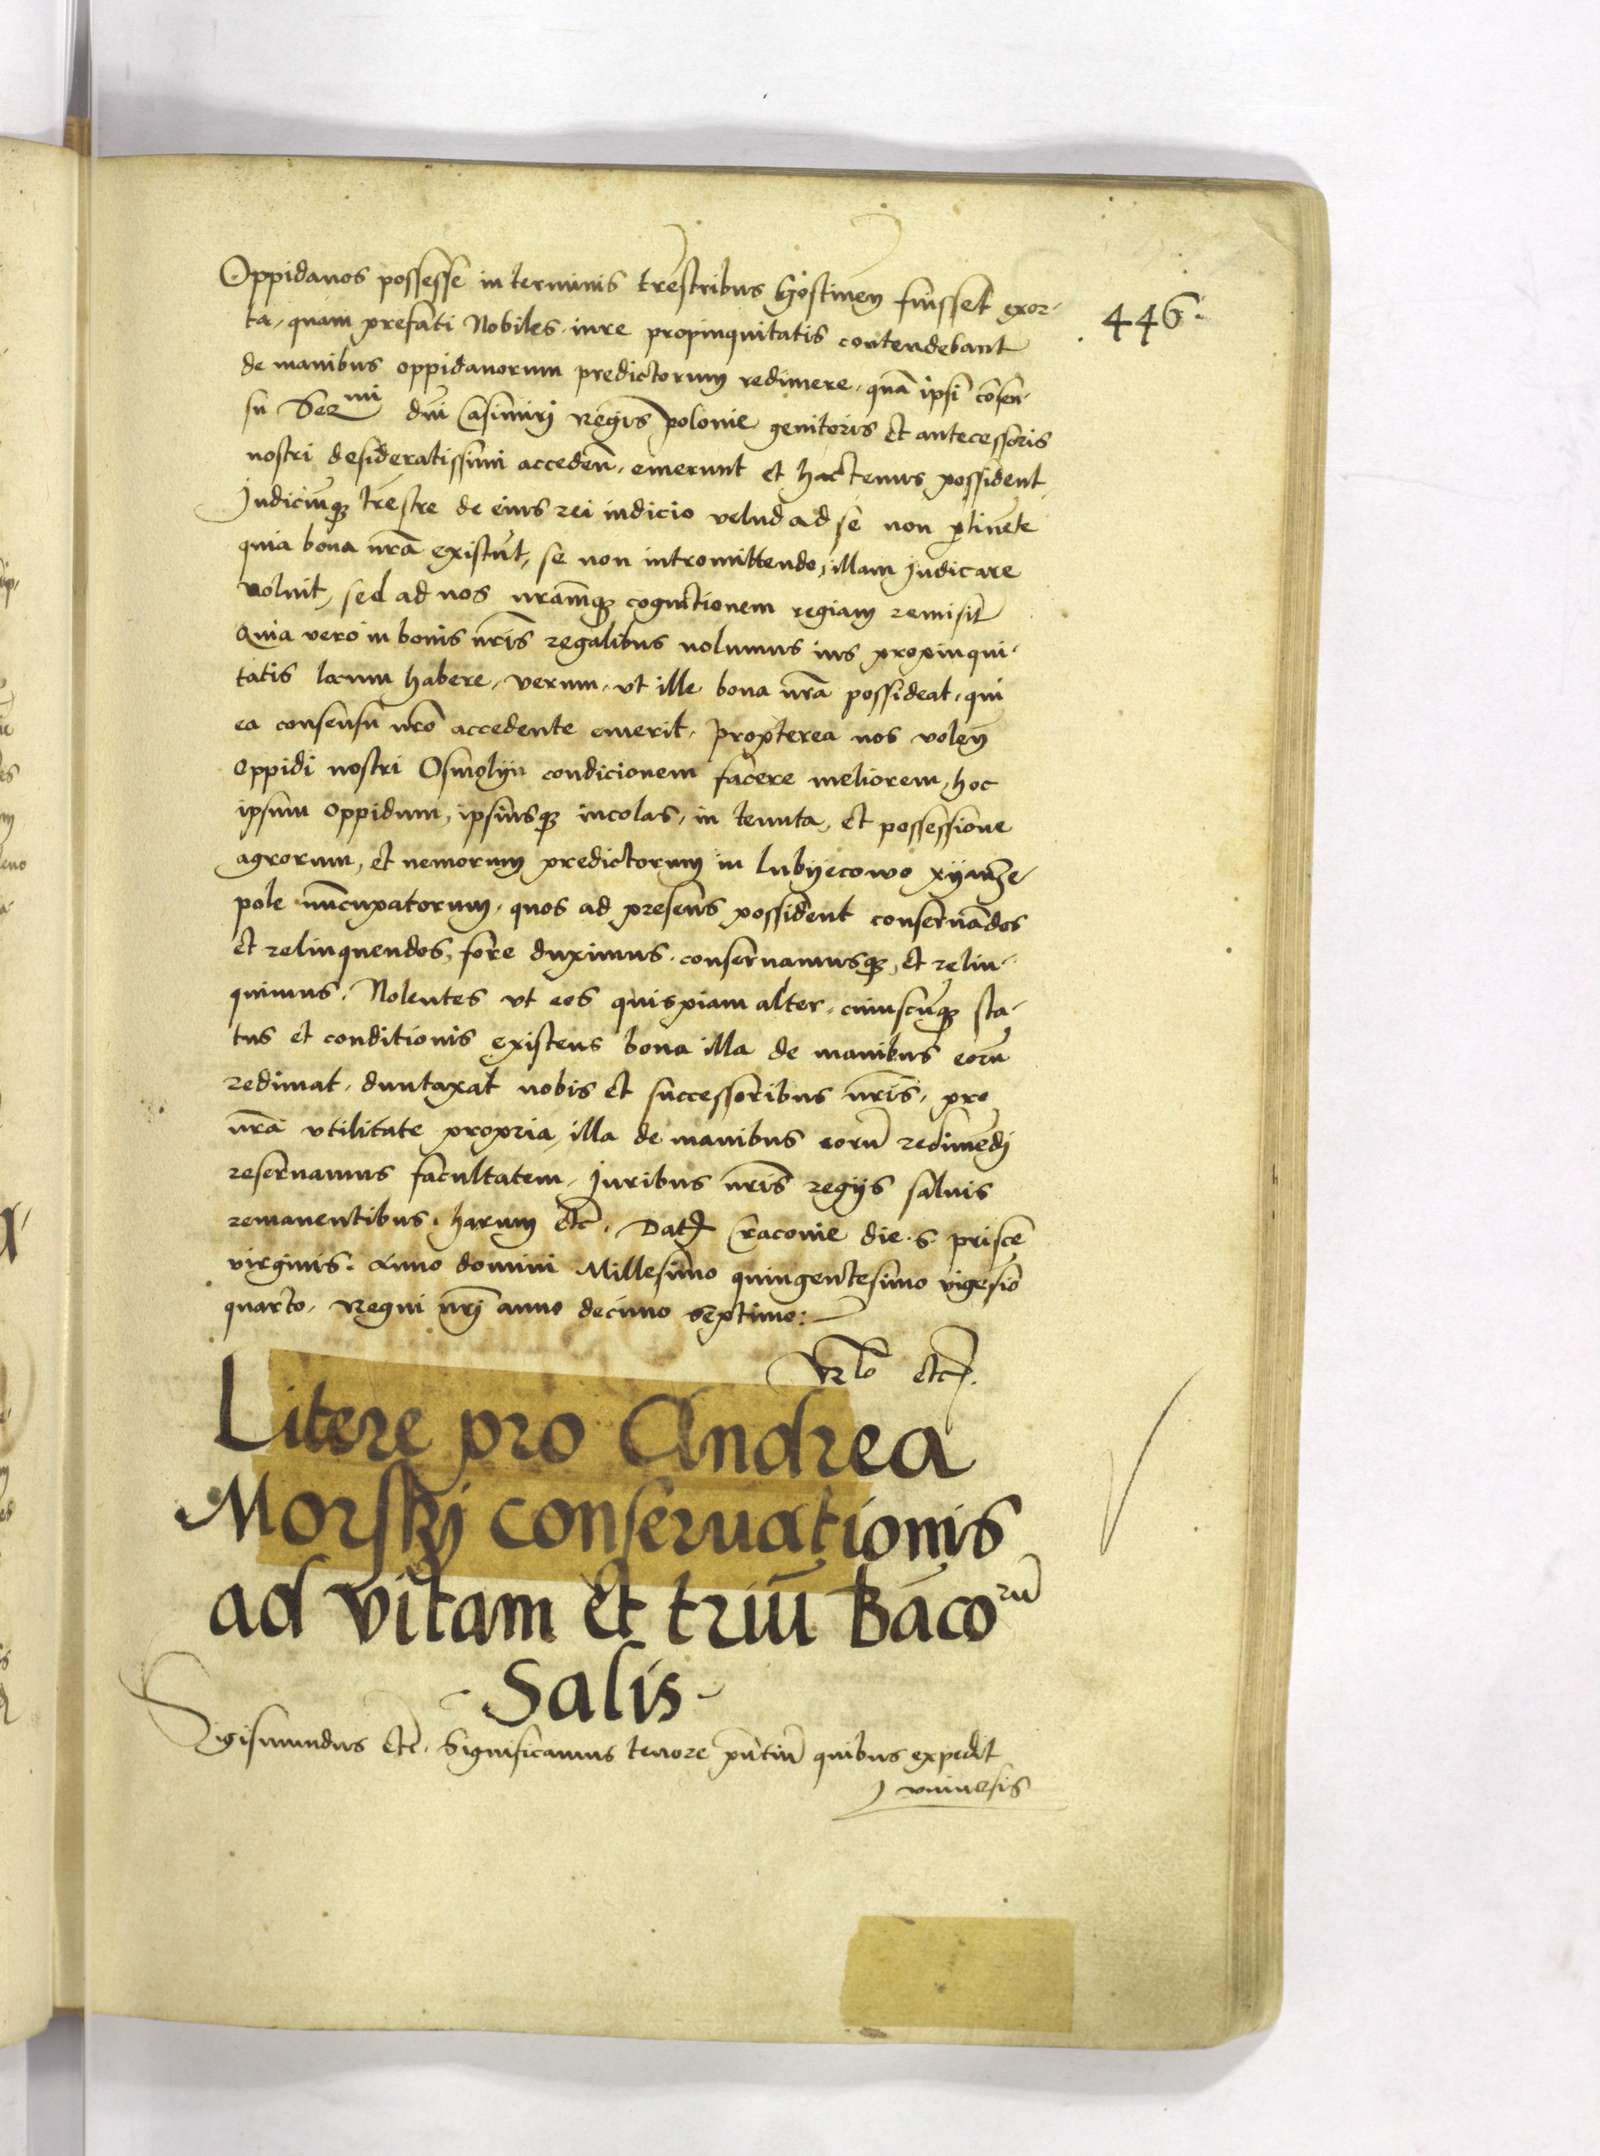 Oppidanos possesse in terminis tr̄estribus Gostinen̄ fuisset exor-
446.
ta, quam prefati Nobiles iure propinquitatis contendebant
de manibus oppidanorum predictorum redimere, quā ipsi cōsen-
su Sermi dnī Casimirj Regis polonie genitoris et antecessoris
nostri desideratissimi acceden̄. emerunt et hactenus possident
Judiciūqꝫ tr̄estre de eius rei iudicio velud ad se non ꝑtinēte
quia bona nr̄a existūt, se non intromittendo, illam judicare
noluit, sed ad nos nr̄amqꝫ cognitionem regiam remisit
Quia vero in bonis nr̄is regalibus nolumus ius propinqui-
tatis locum habere, verum, vt ille bona nr̄a possideat, qui
ea consensu nr̄o accedente emerit, propterea nos volen̄
Oppidi nostri Osmolijn condicionem facere meliorem, hoc
ipsum oppidum, ipsiusqꝫ incolas, in tenuta, et possessione
agrorum, et nemorum predictorum in lubyecowo
pole nūcupatorum, quos ad presens possident conseruādos
et relinquendos, fore duximus, conseruamusqꝫ, et relin-
quimus. Nolentes vt eos quispiam alter, cuiuscūqꝫ sta-
tus et conditionis existens bona illa de manibus eorū
redimat, duntaxat nobis et successoribus nr̄is, pro
nr̄a vtilitate propria, illa de manibus eorū redimēdj
reseruamus facultatem, Juribus nr̄is regijs saluis
remanentibus. harum etc̄. Datꝫ Cracouie die .S. prisce
virginis. Anno domini Millesimo quingentesimo vigesīo
quarto, Regni nr̄j anno decimo septimo:
Rlō etc̄.
Litere pro Andrea
Morskj conseruationis
ad vitam et triū Bācorū
Salis
Sigismundus etc̄. Significamus tenore pn̄tiū quibus expedit
vniuersis